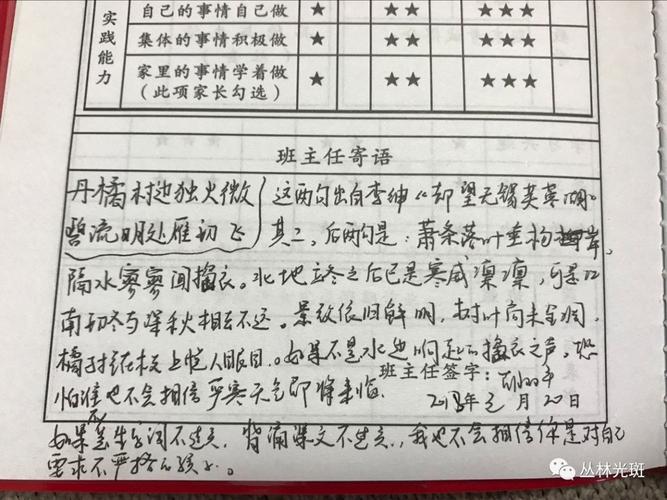 实践能力
自己的事情自己做 ★ ★★ ★★★
集体的事情积极做 ★ ★★ ★★★
家里的事情学着做 ★ ★★ ★★★
(此项家长勾选)
班主任寄语
丹橘村边独火微 这两句出自李绅《却望无锡芙蓉湖》
碧流明处雁初飞 其二,后两句是:萧条落叶垂杨岸,
隔水寥寥闻捣衣。北地立冬之后已是寒威凛凛,可是江
南初冬与深秋相去不远。景致依旧鲜明,树叶尚未全凋,
橘子挂在枝上惹人眼目。如果不是水边响起的捣衣之声,恐
怕谁也不会相信严寒天气即将来临.
班主任签字:
2018年元月20日
如果不是生字词不过关,背诵课文不过关,我也不会相信你是对自己
要求不严格的孩子。
丛林光斑